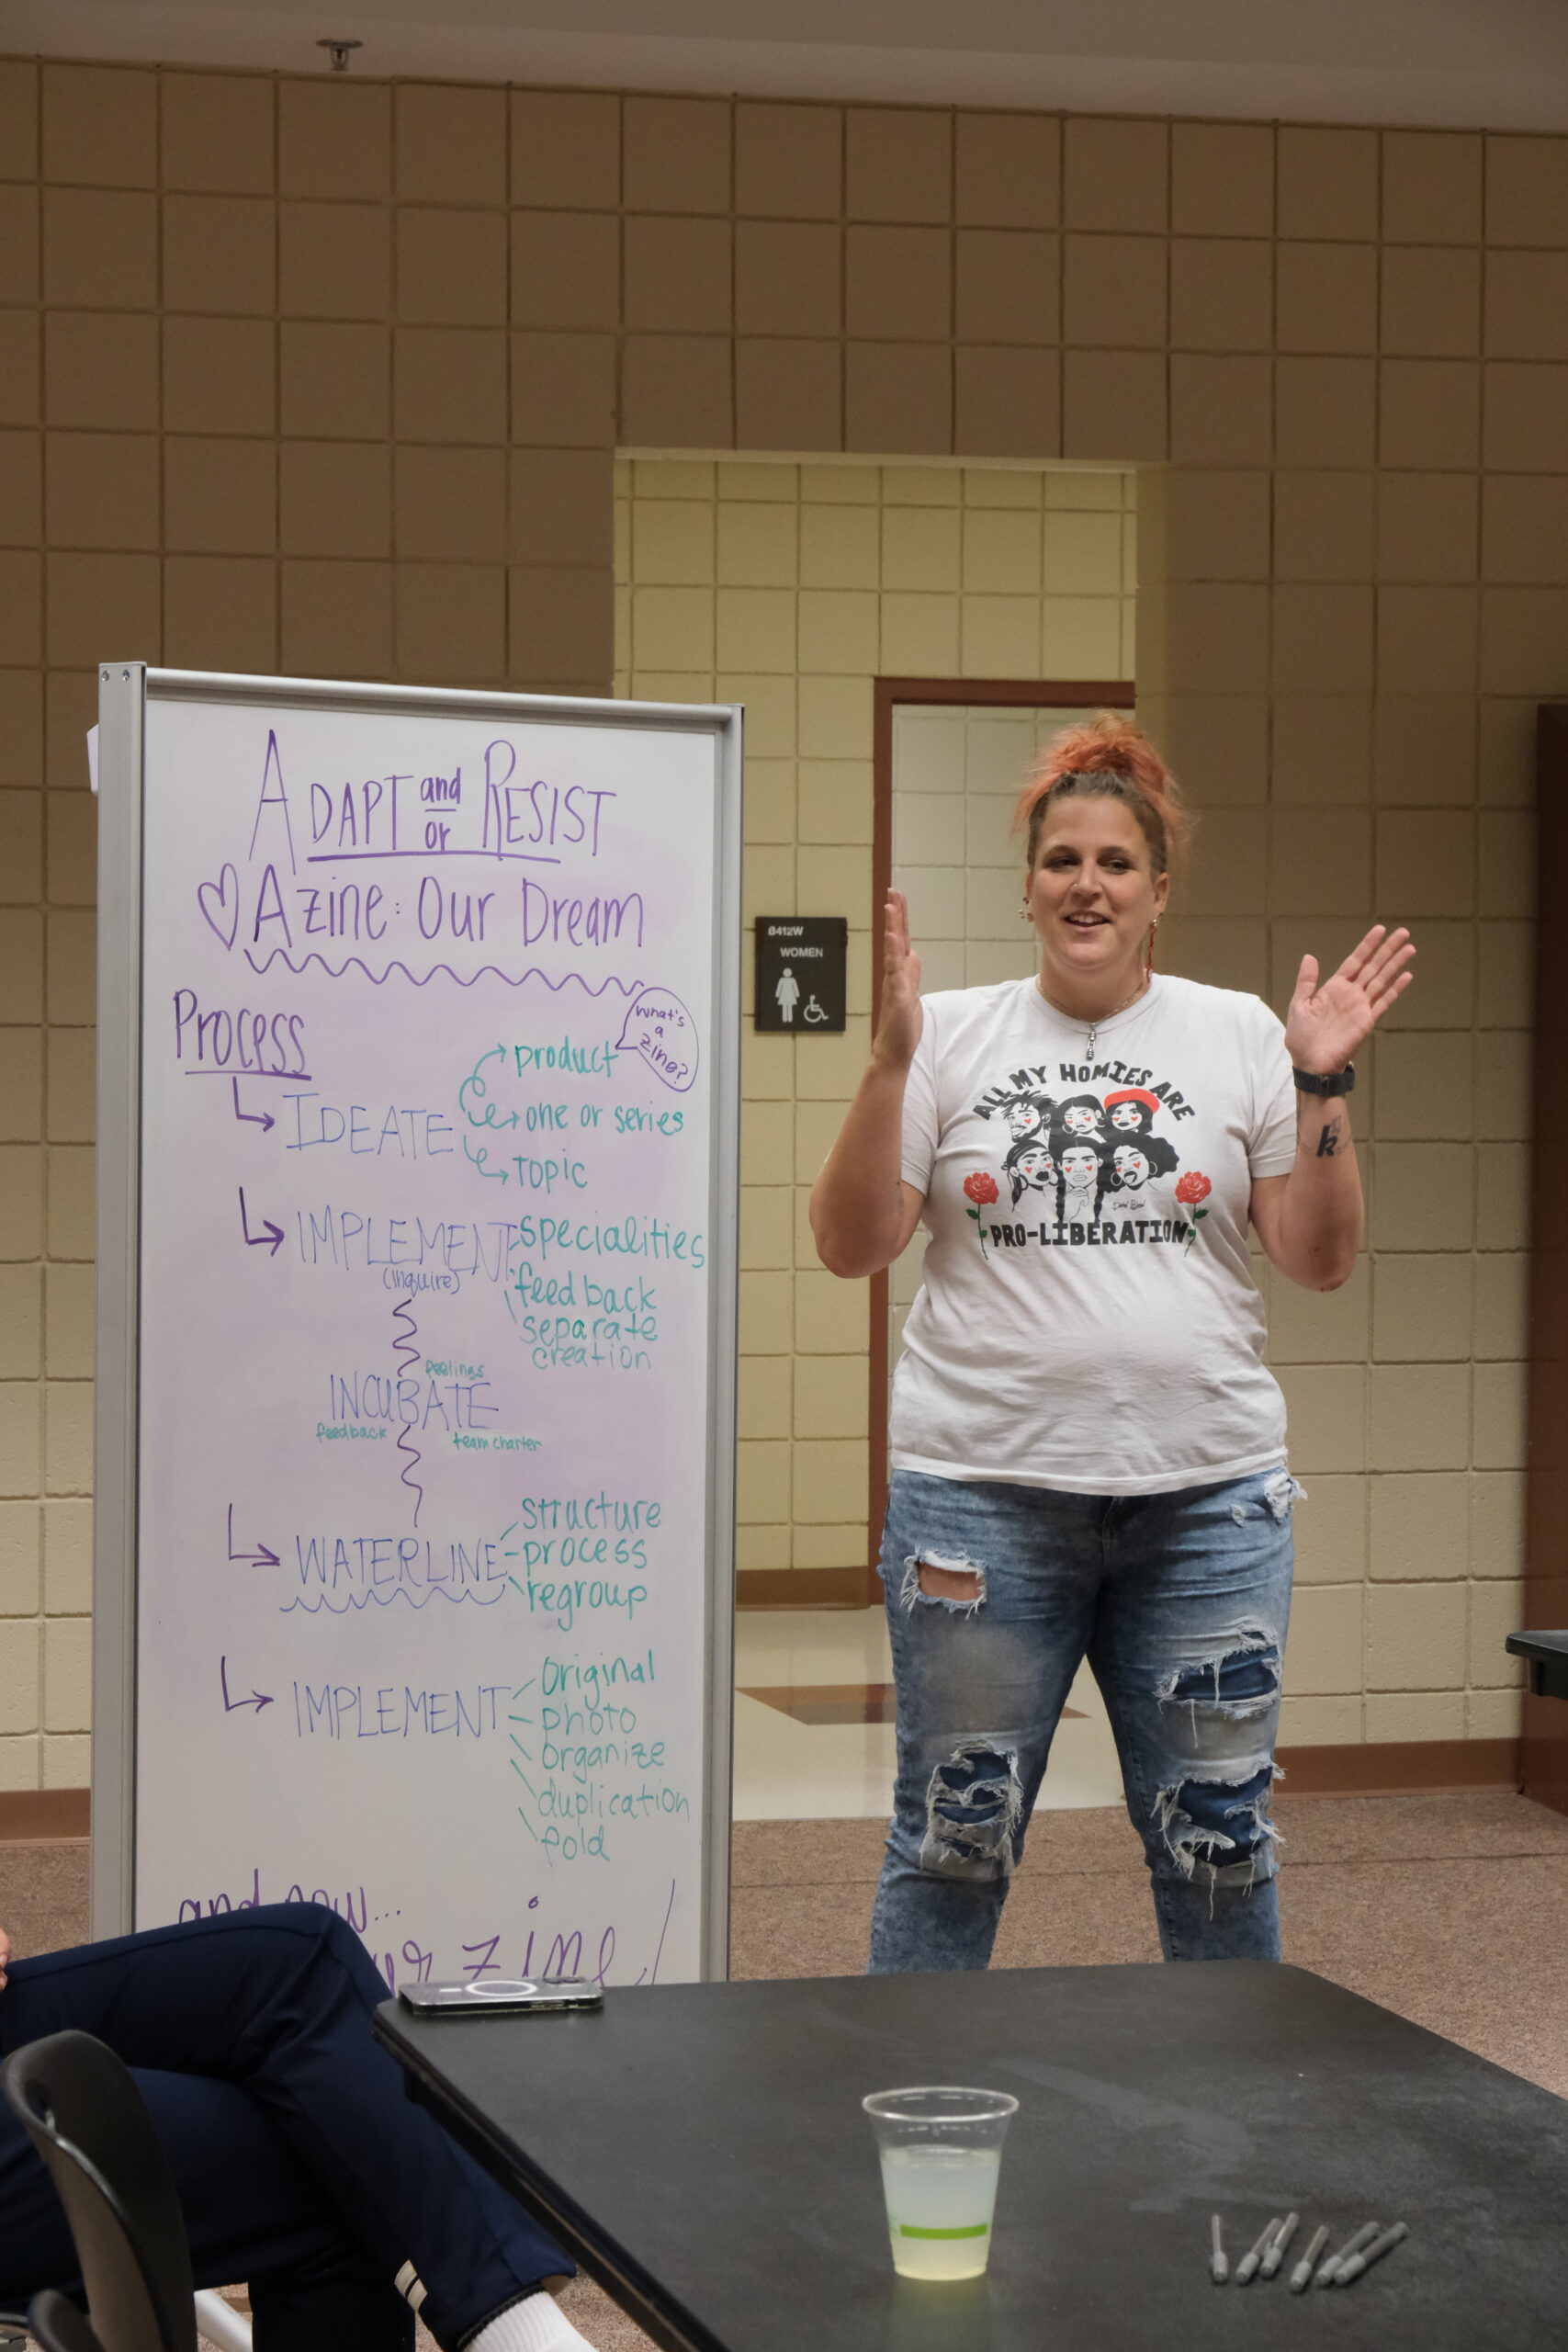 ADAPT and or RESIST
A zine: Our Dream
Process
What's
a
zine?
IDEATE
product
one or series
TOPIC
IMPLEMENT
(inquire)
specialities
feedback
separate
creation
feelings
INCUBATE
feedback
team charter
WATERLINE
structure
process
regroup
IMPLEMENT
Original
photo
organize
duplication
fold
and now...
zine!
6412W
WOMEN
ALL MY HOMIES ARE
PRO-LIBERATION
k